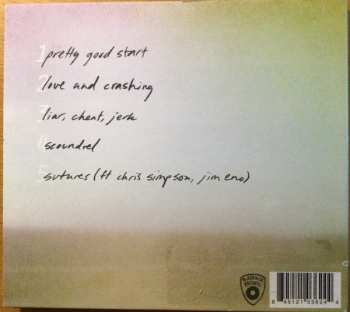 1 pretty good start
2 love and crashing
3 liar, cheat, jerk
4 scoundrel
5 sutures (ft chris simpson, jim eno)